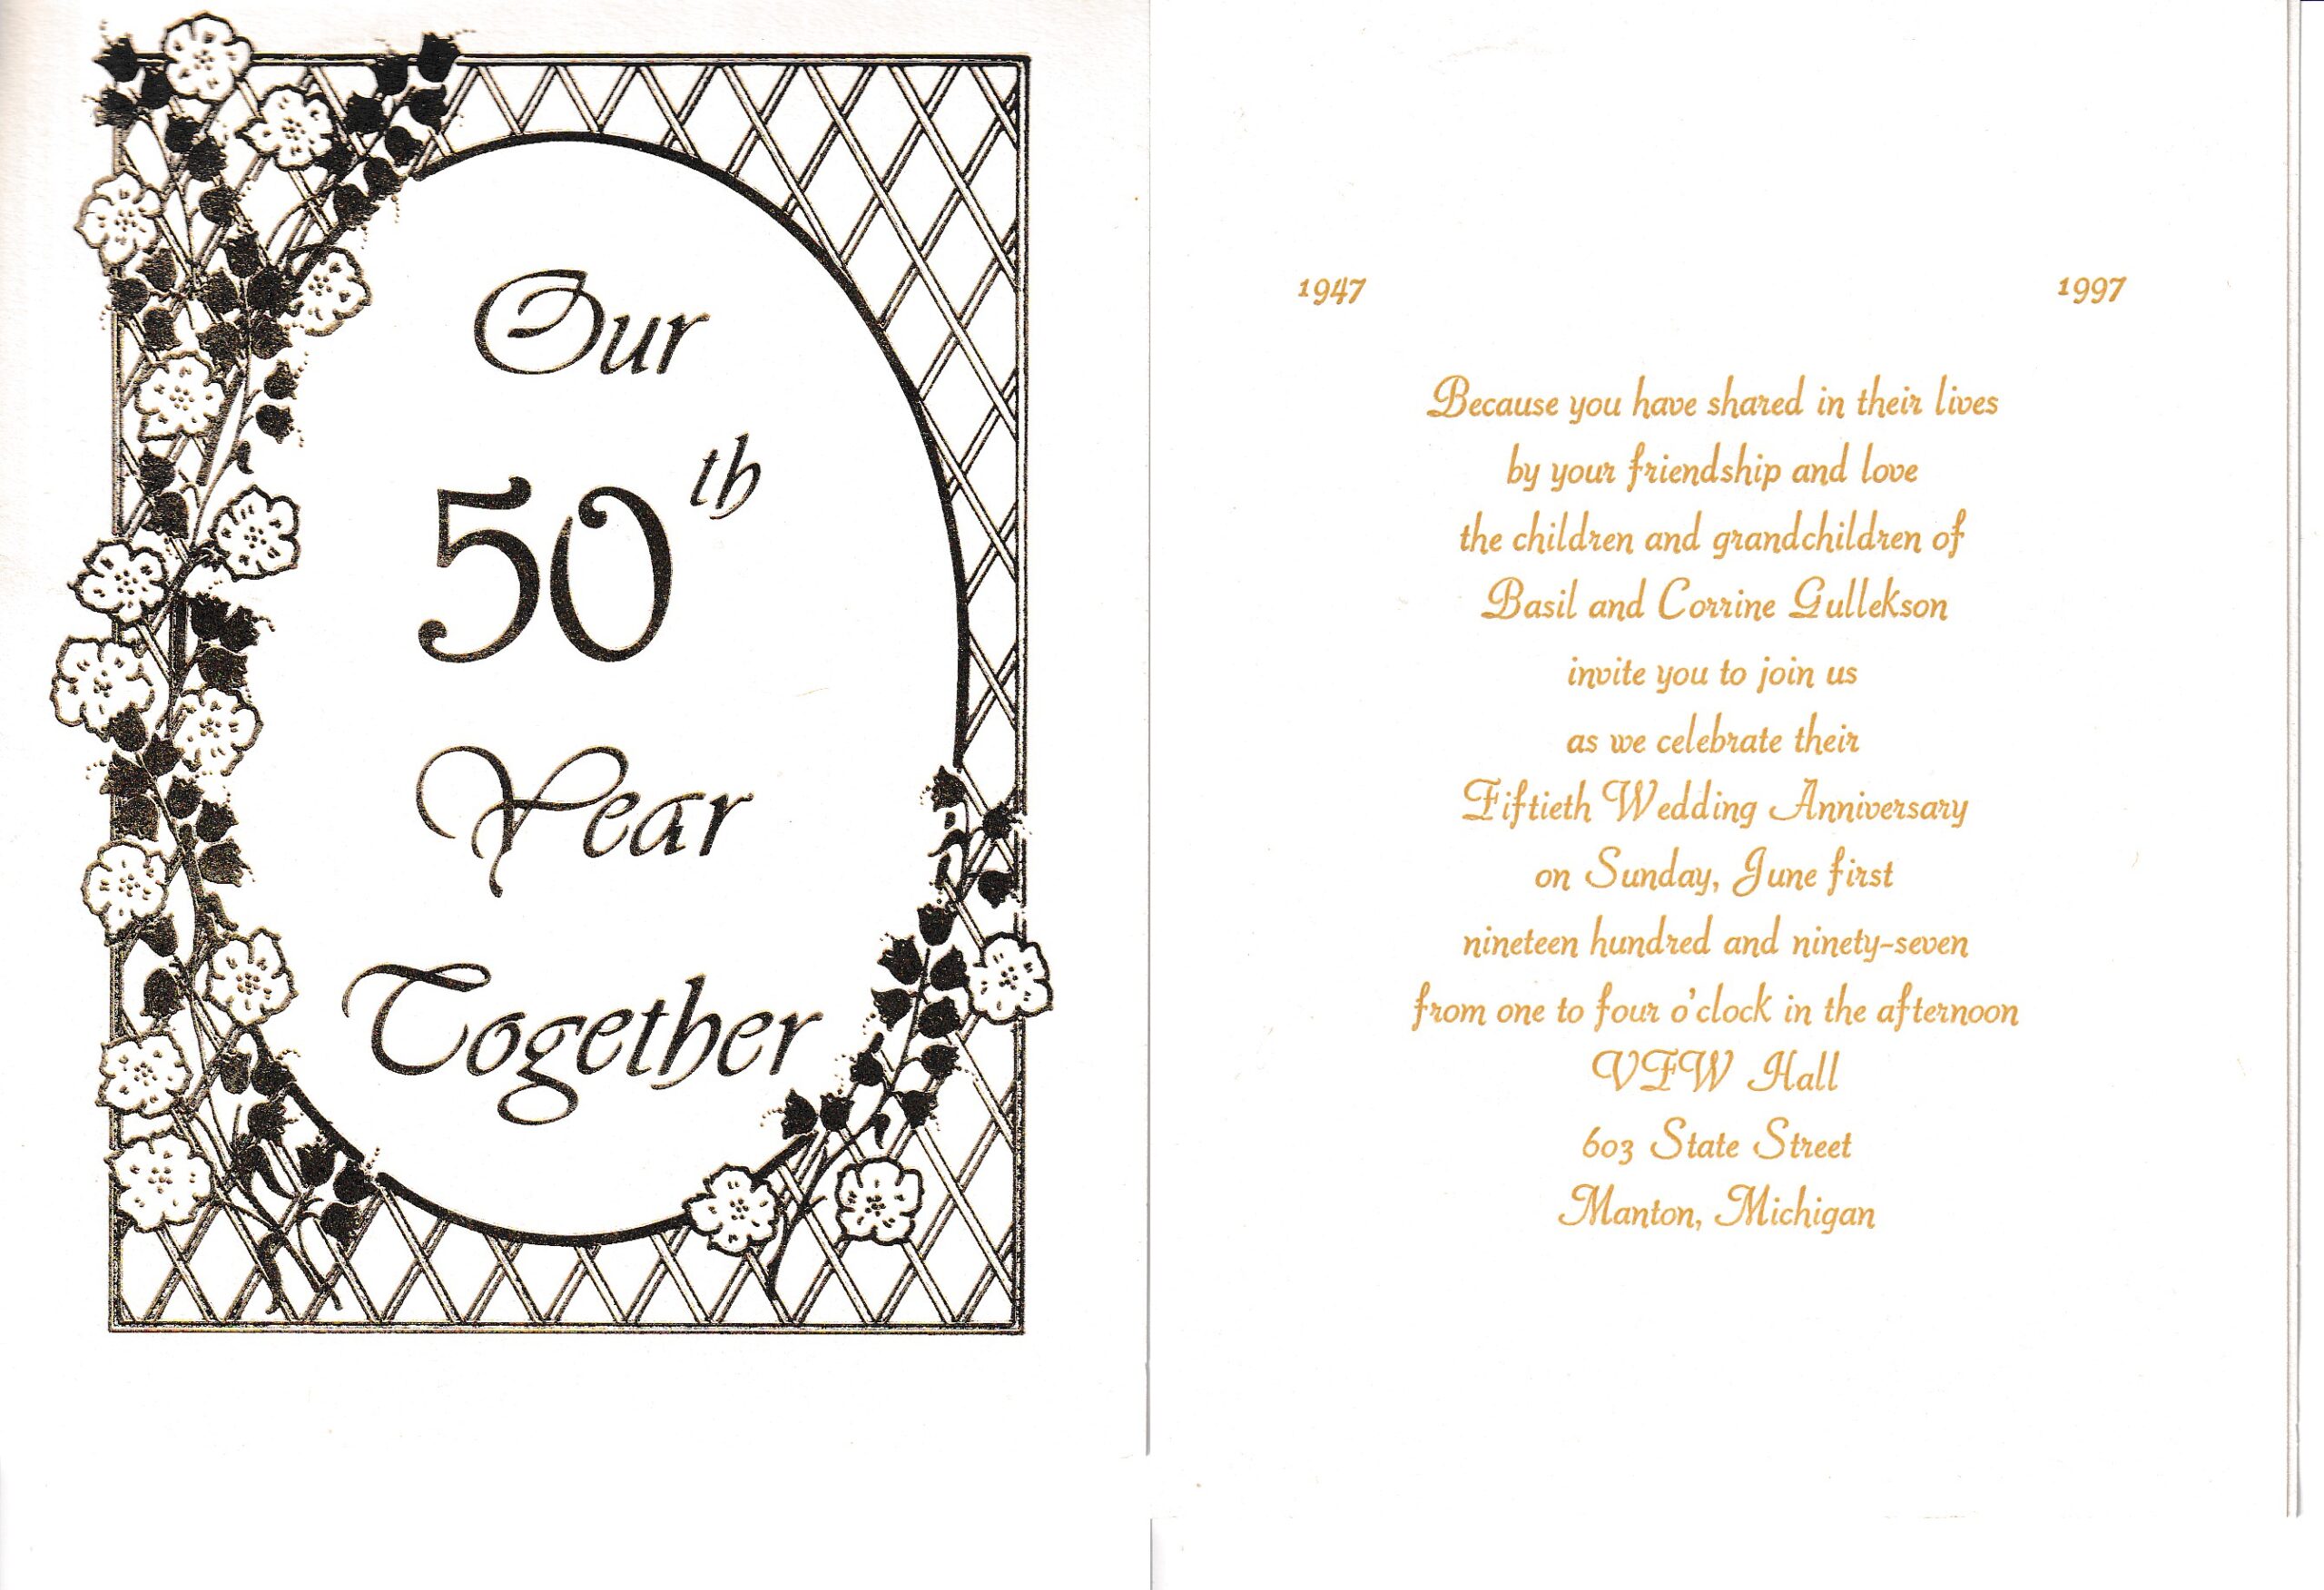 Our
50th
Year
Together
1947 1997
Because you have shared in their lives
by your friendship and love
the children and grandchildren of
Basil and Corrine Gullekson
invite you to join us
as we celebrate their
Fiftieth Wedding Anniversary
on Sunday, June first
nineteen hundred and ninety-seven
from one to four o'clock in the afternoon
VFW Hall
603 State Street
Manton, Michigan